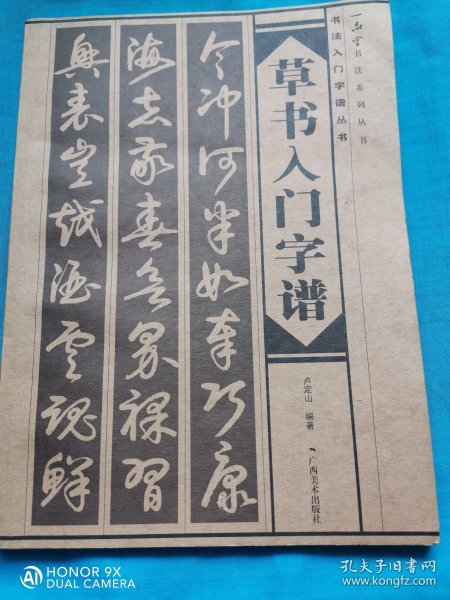 一㪚堂书法系列丛书
书法入门字谱丛书
草书入门字谱
卢定山 编著
广西美术出版社
令冲何半如奉巧康
海志義春岳界裸習
與表豈越酒雲魂鮮
AI HONOR 9X
DUAL CAMERA
孔夫子旧书网
www.kongfz.com